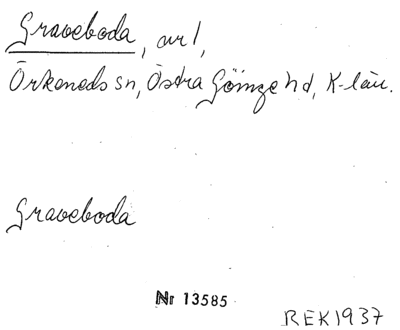 Graveboda, nr 1,
Örkeneds sn, Östra Göinge hd, K-län.
Graveboda
Nr 13585
REK1937